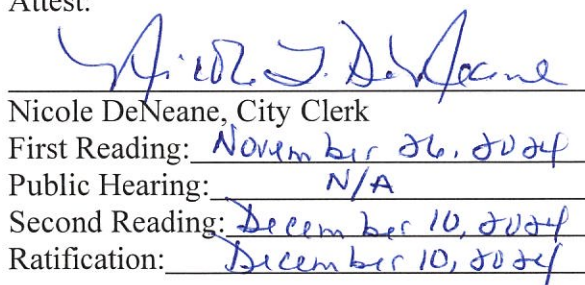 Attest:
Nicole J. DeNeane
Nicole DeNeane, City Clerk
First Reading: November 26, 2024
Public Hearing: N/A
Second Reading: December 10, 2024
Ratification: December 10, 2024